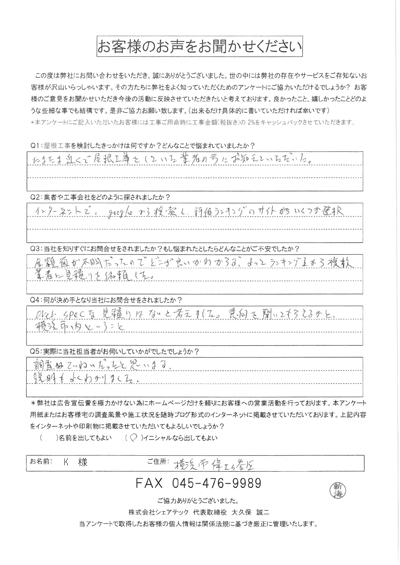 お客様のお声をお聞かせください
この度は弊社にお問い合わせをいただき、誠にありがとうございました。世の中には弊社の存在やサービスをご存知ないお
客様が沢山いらっしゃいます。その方たちに弊社をよく知っていただくためのアンケートにご協力いただけるでしょうか？ お客
様のご意見をお聞かせいただき今後の活動に反映させていただきたいと考えております。良かったこと、嬉しかったことどのよ
うな些細な事でも結構です。是非ご協力お願い致します。（出来るだけ具体的に書いていただければ幸いです）
*本アンケートにご記入いただいたお客様には工事ご用命時に工事金額(税抜き)の2%をキャッシュバックさせていただきます。
Q1：屋根工事を検討したきっかけは何ですか？どんなことで悩まれていましたか？
たまたま近くで屋根工事をしていた業者の方に教えていただいた。
Q2：業者や工事会社をどのように探されましたか？
インターネットで、googleから検索し、評価ランキングのサイトからいくつか選択
Q3：当社を知りすぐにお問合せをされましたか？もし悩まれたとしたらどんなことがご不安でしたか？
金額面が不明だったのでどこが良いかわからず、よってランキング上から複数
業者に見積りを依頼した。
Q4：何が決め手となり当社にお問合せをされましたか？
な見積りはないと考えました。意向を聞いてもらえるかと、
横浜市内ということ
Q5：実際に当社担当者がお伺いしていかがでしたでしょうか？
調査はていねいだったと思います。
説明もよくわかりました。
＊弊社は広告宣伝費を極力かけない為にホームページだけを頼りにお客様への営業活動を行っております。本アンケート
用紙またはお客様宅の調査風景や施工状況を随時ブログ形式のインターネットに掲載させていただいております。上記内容
をインターネットや印刷物に掲載させていただいてもよろしいでしょうか？
（ ）名前を出してもよい （✓）イニシャルなら出してもよい
お名前： K 様 ご住所： 横浜市保土ヶ谷区
FAX 045-476-9989
新海
ご協力ありがとうございました。
株式会社シェアテック 代表取締役 大久保 誠二
当アンケートで取得したお客様の個人情報は関係法規に基づき厳正に管理いたします。